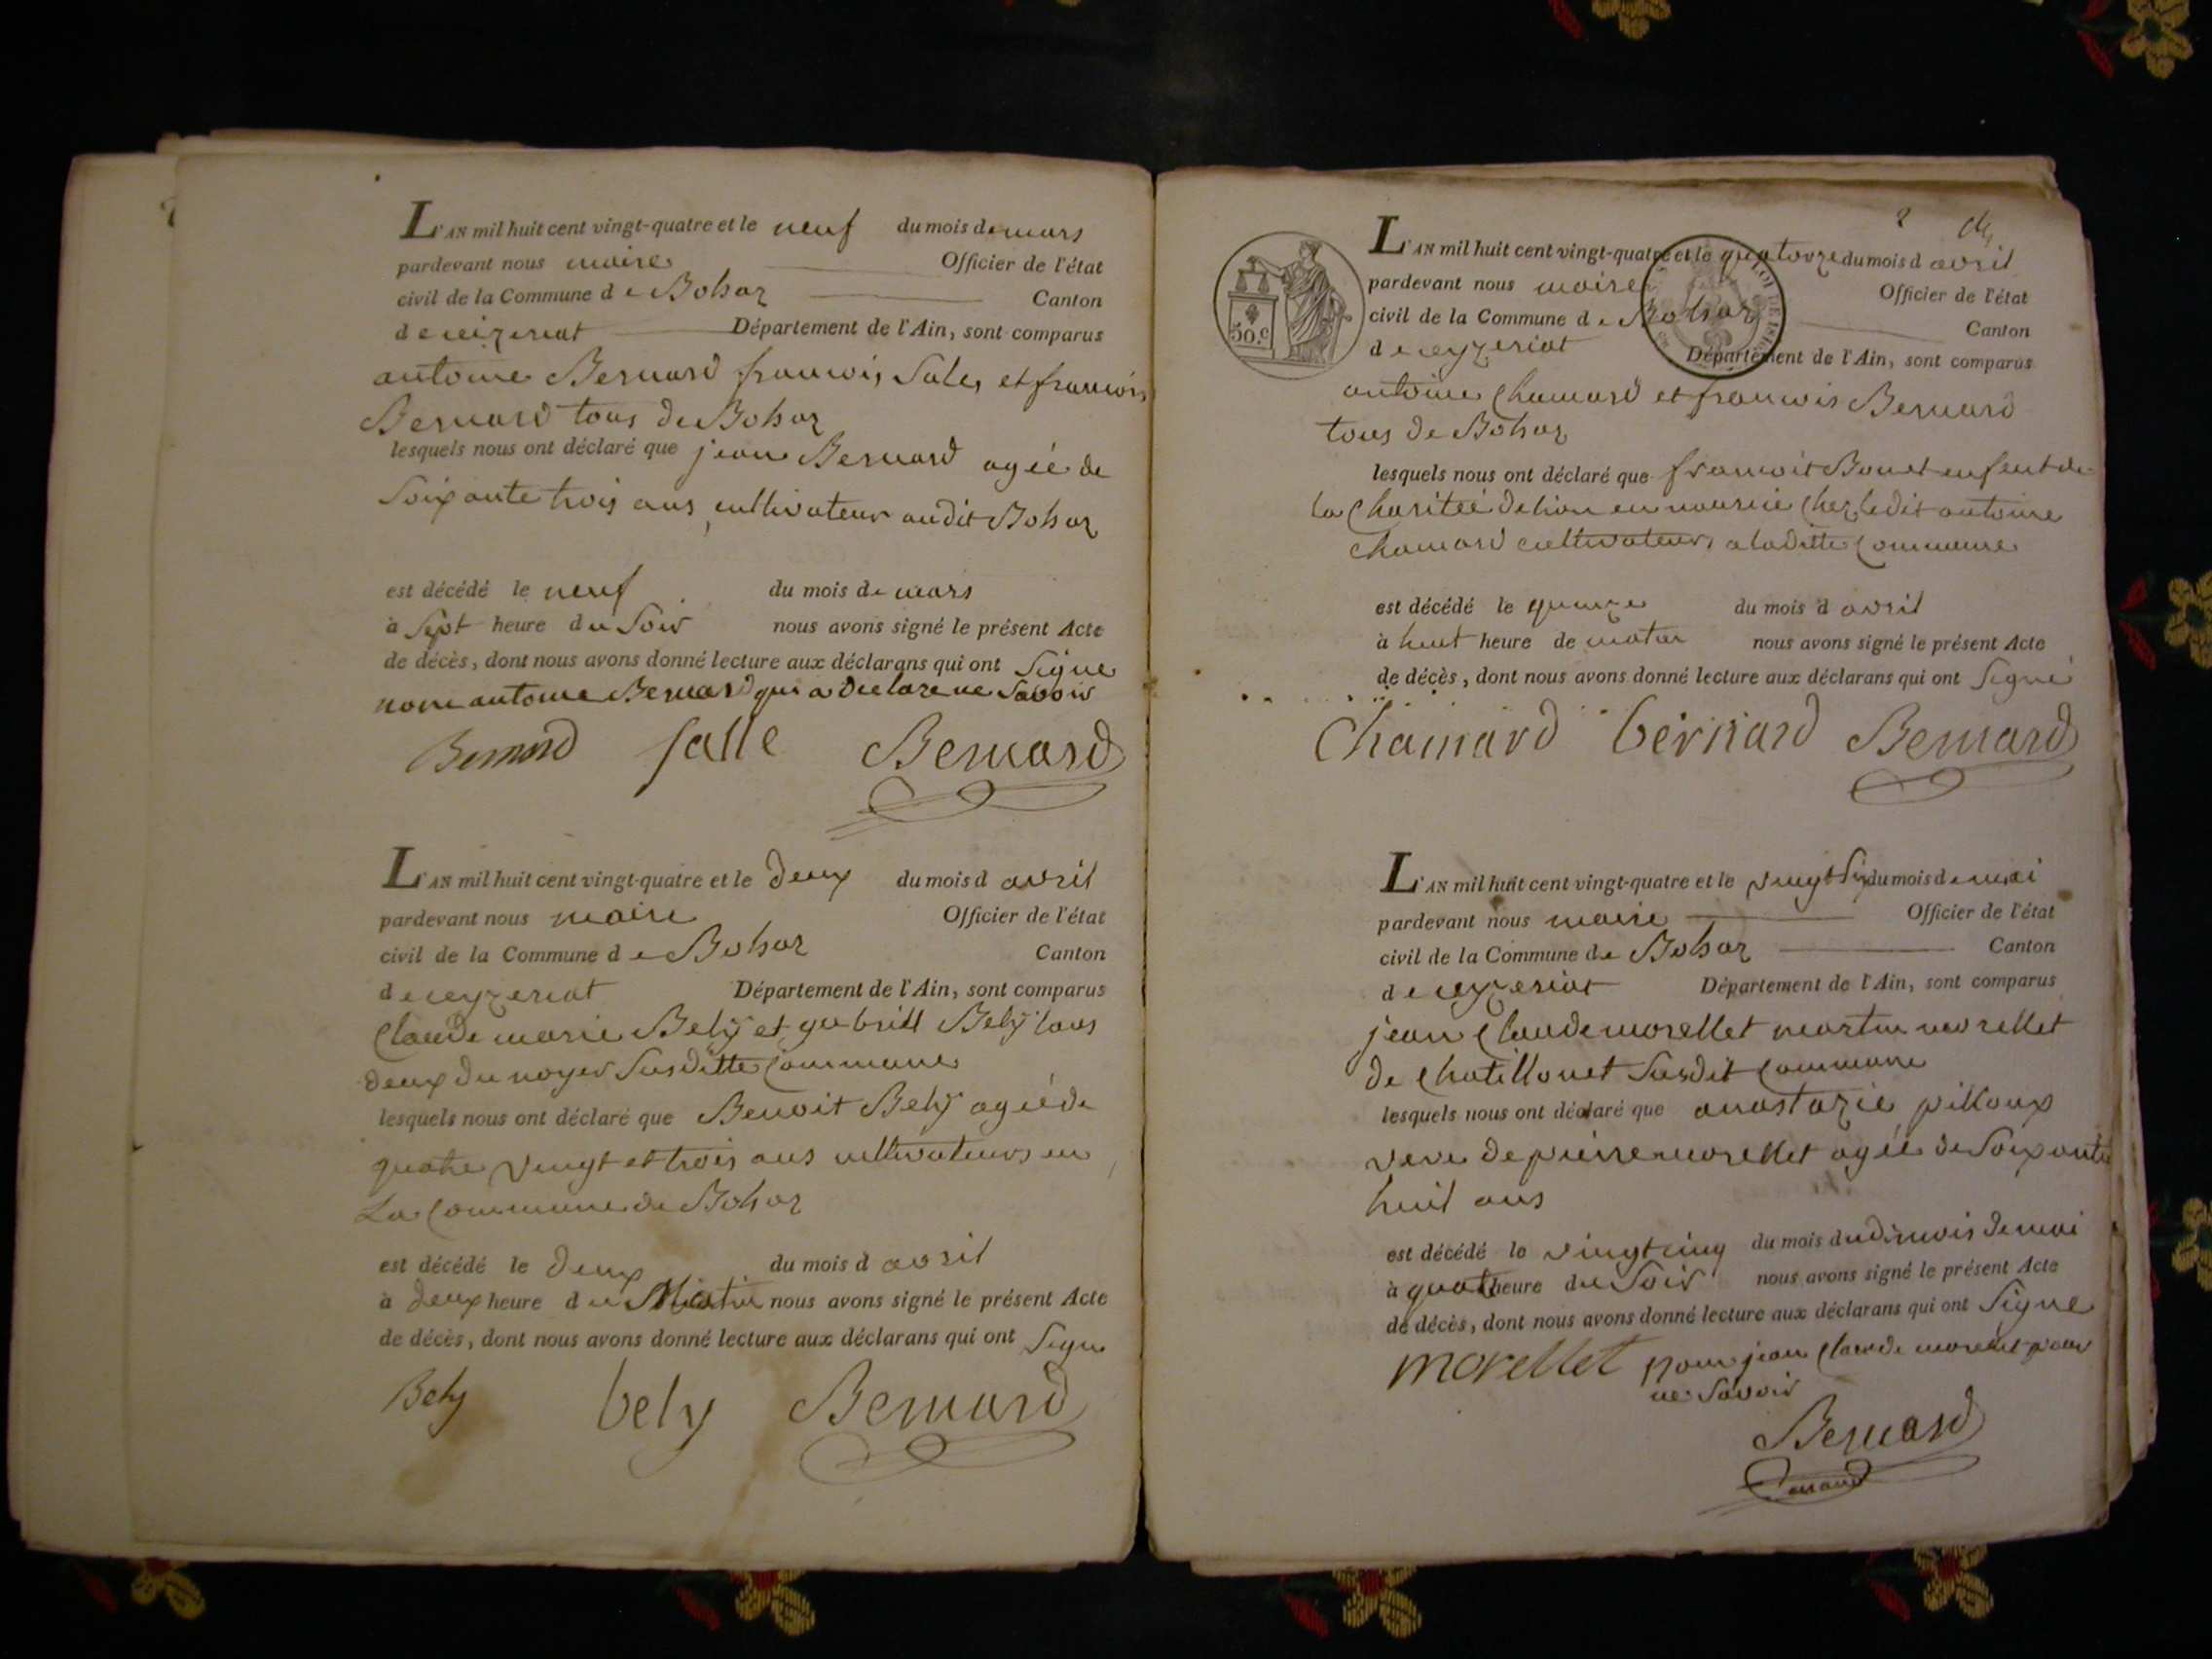 L'AN mil huit cent vingt-quatre et le neuf du mois de mars
pardevant nous maire Officier de l'état
civil de la Commune de Bohaz Canton
de ceizeriat Département de l'Ain, sont comparus
antoine Bernard francois Sales et francois
Bernard tous de Bohaz
lesquels nous ont déclaré que jean Bernard ageé de
Soixante trois ans cultivateur audit Bohaz
est décédé le neuf du mois de mars
à Sept heure du Soir nous avons signé le présent Acte
de décès, dont nous avons donné lecture aux déclarans qui ont Signe
non antoine Bernard qui a declare ne Savoir
Bernard Salle Bernard
L'AN mil huit cent vingt-quatre et le deux du mois d avril
pardevant nous maire Officier de l'état
civil de la Commune de Bohaz Canton
de ceyzeriat Département de l'Ain, sont comparus
Claude marie Bely et gabriel Bely tous
deux du noyer Susditte Commune
lesquels nous ont déclaré que Benoit Bely ageé de
quatre vingt et trois ans cultivateurs en
La Commune de Bohaz
est décédé le deux du mois d avril
à deux heure du Matin nous avons signé le présent Acte
de décès, dont nous avons donné lecture aux déclarans qui ont Signe
Bely bely Bernard
2
L'AN mil huit cent vingt-quatre et le quatorze du mois d avril
pardevant nous maire Officier de l'état
civil de la Commune de Bohaz Canton
de ceyzeriat Département de l'Ain, sont comparus
50.c
antoine Chanard et francois Bernard
tous de Bohaz
lesquels nous ont déclaré que francois Bonet enfent de
la Charitée de lion en nourice Chez ledit antoine
Chanard cultivateur a laditte Commune
est décédé le quinze du mois d avril
à huit heure de matin nous avons signé le présent Acte
de décès, dont nous avons donné lecture aux déclarans qui ont Signé
Chanard bernard Bernard
L'AN mil huit cent vingt-quatre et le vingt Six du mois de mai
pardevant nous maire Officier de l'état
civil de la Commune de Bohaz Canton
de ceyzeriat Département de l'Ain, sont comparus
jean Claude morellet martin morellet
de Chatillonet Susdit Commune
lesquels nous ont déclaré que anastazie pilloux
veve de pierre morellet ageé de Soixante
huit ans
est décédé le vingt cinq du mois dudi mois de mai
à quat heure du Soir nous avons signé le présent Acte
de décès, dont nous avons donné lecture aux déclarans qui ont Signe
morellet non jean Claude morellet pour
ne Savoir
Bernard